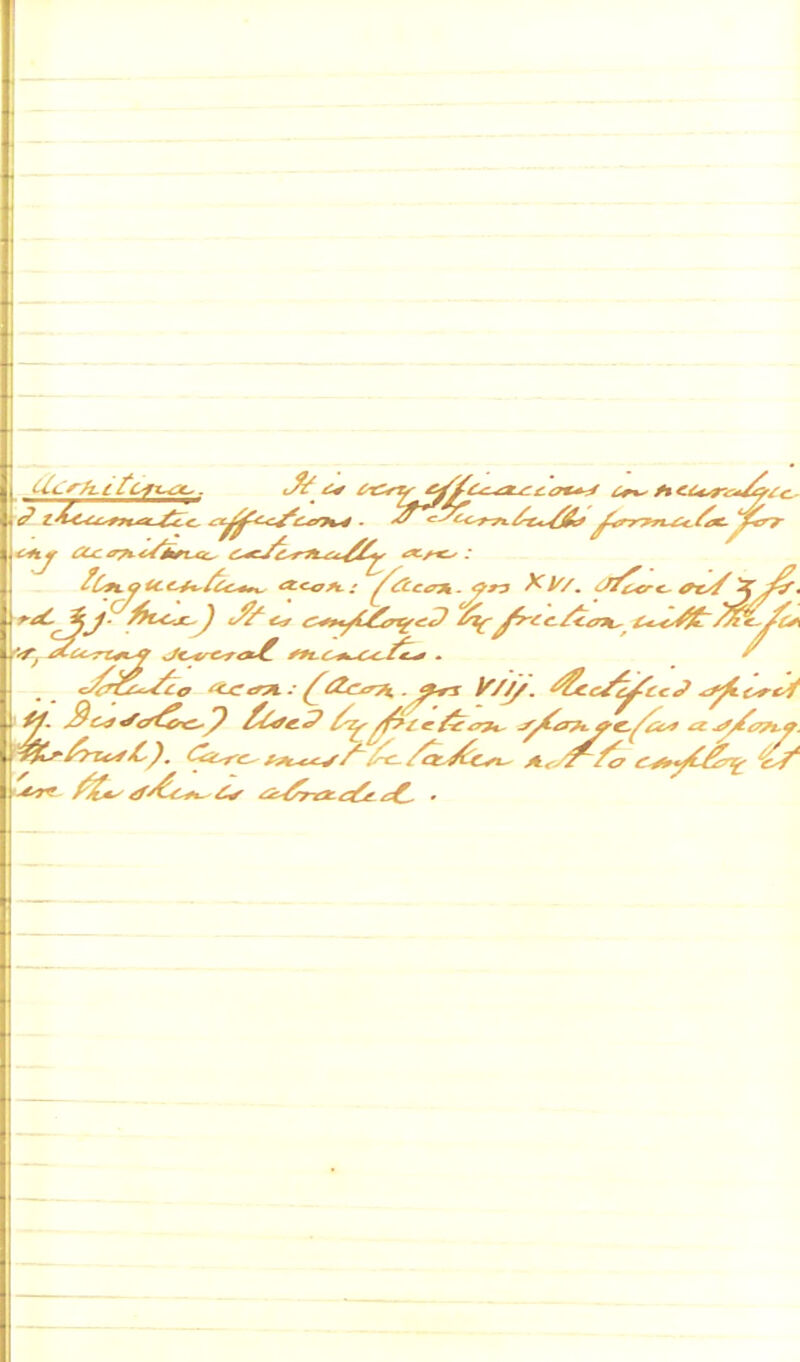 Aconitina. It is very efficacious in neuralgic
& rheumatic affections. D.r Turnbull's formula for
using Aconitina externally are:
Unguentum acon: (Acon. grs XVI. Olive oil ʒ fs.
Lard ℥j. Mix) It is employed by friction, with the fin
ger, during several minutes.
Solutio acon: (Acon. grs Viij. Rectified spirit
℥ij. Dissolve) Used by friction sponge (as a sponge,
toothbrush). Care must be taken not to employ it
where the skin is abraded.